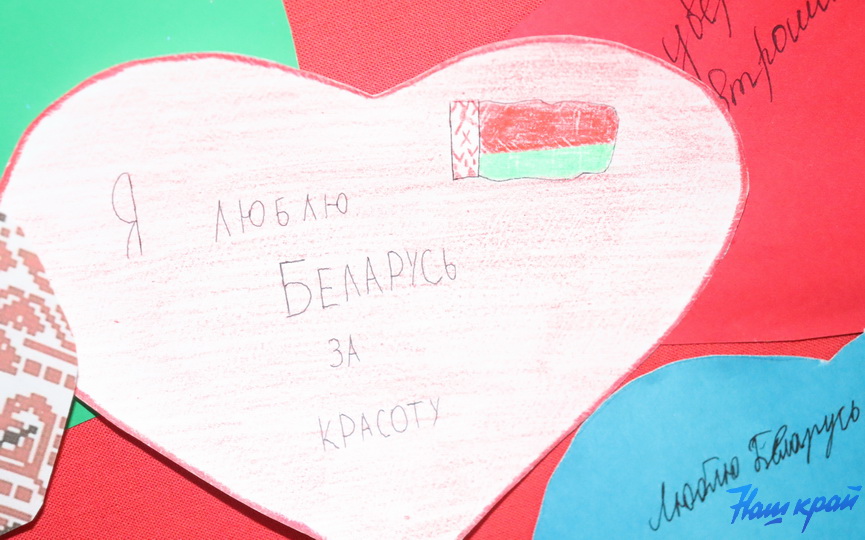 Я люблю
БЕЛАРУСЬ
ЗА
КРАСОТУ
Люблю Беларусь
Наш край